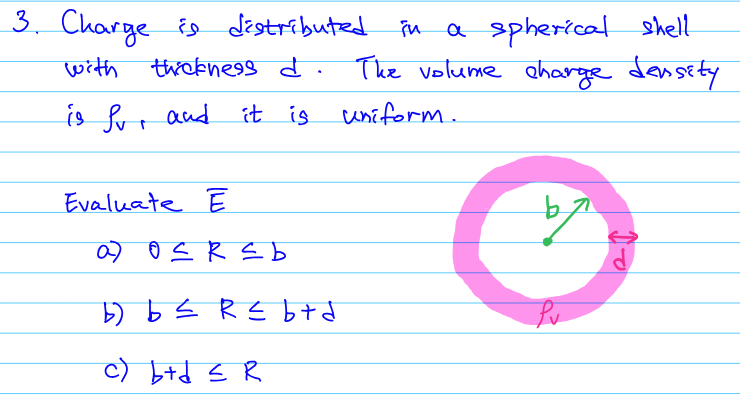 3. Charge is distributed in a spherical shell
with thickness d. The volume charge density
is ρv, and it is uniform.
Evaluate E̅
a) 0 ≤ R ≤ b
b) b ≤ R ≤ b+d
c) b+d ≤ R
b
d
ρv